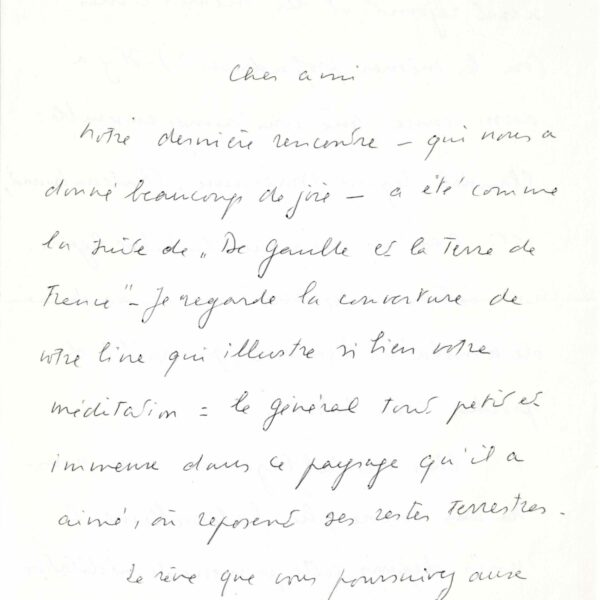 Cher ami
Notre dernière rencontre – qui nous a
donné beaucoup de joie – a été comme
la suite de „De Gaulle et la Terre de
France" – Je regarde la couverture de
votre livre qui illustre si bien votre
méditation = le général tout petit et
immense dans ce paysage qu'il a
aimé, où reposent ses restes terrestres.
Le rêve que vous poursuivez avec